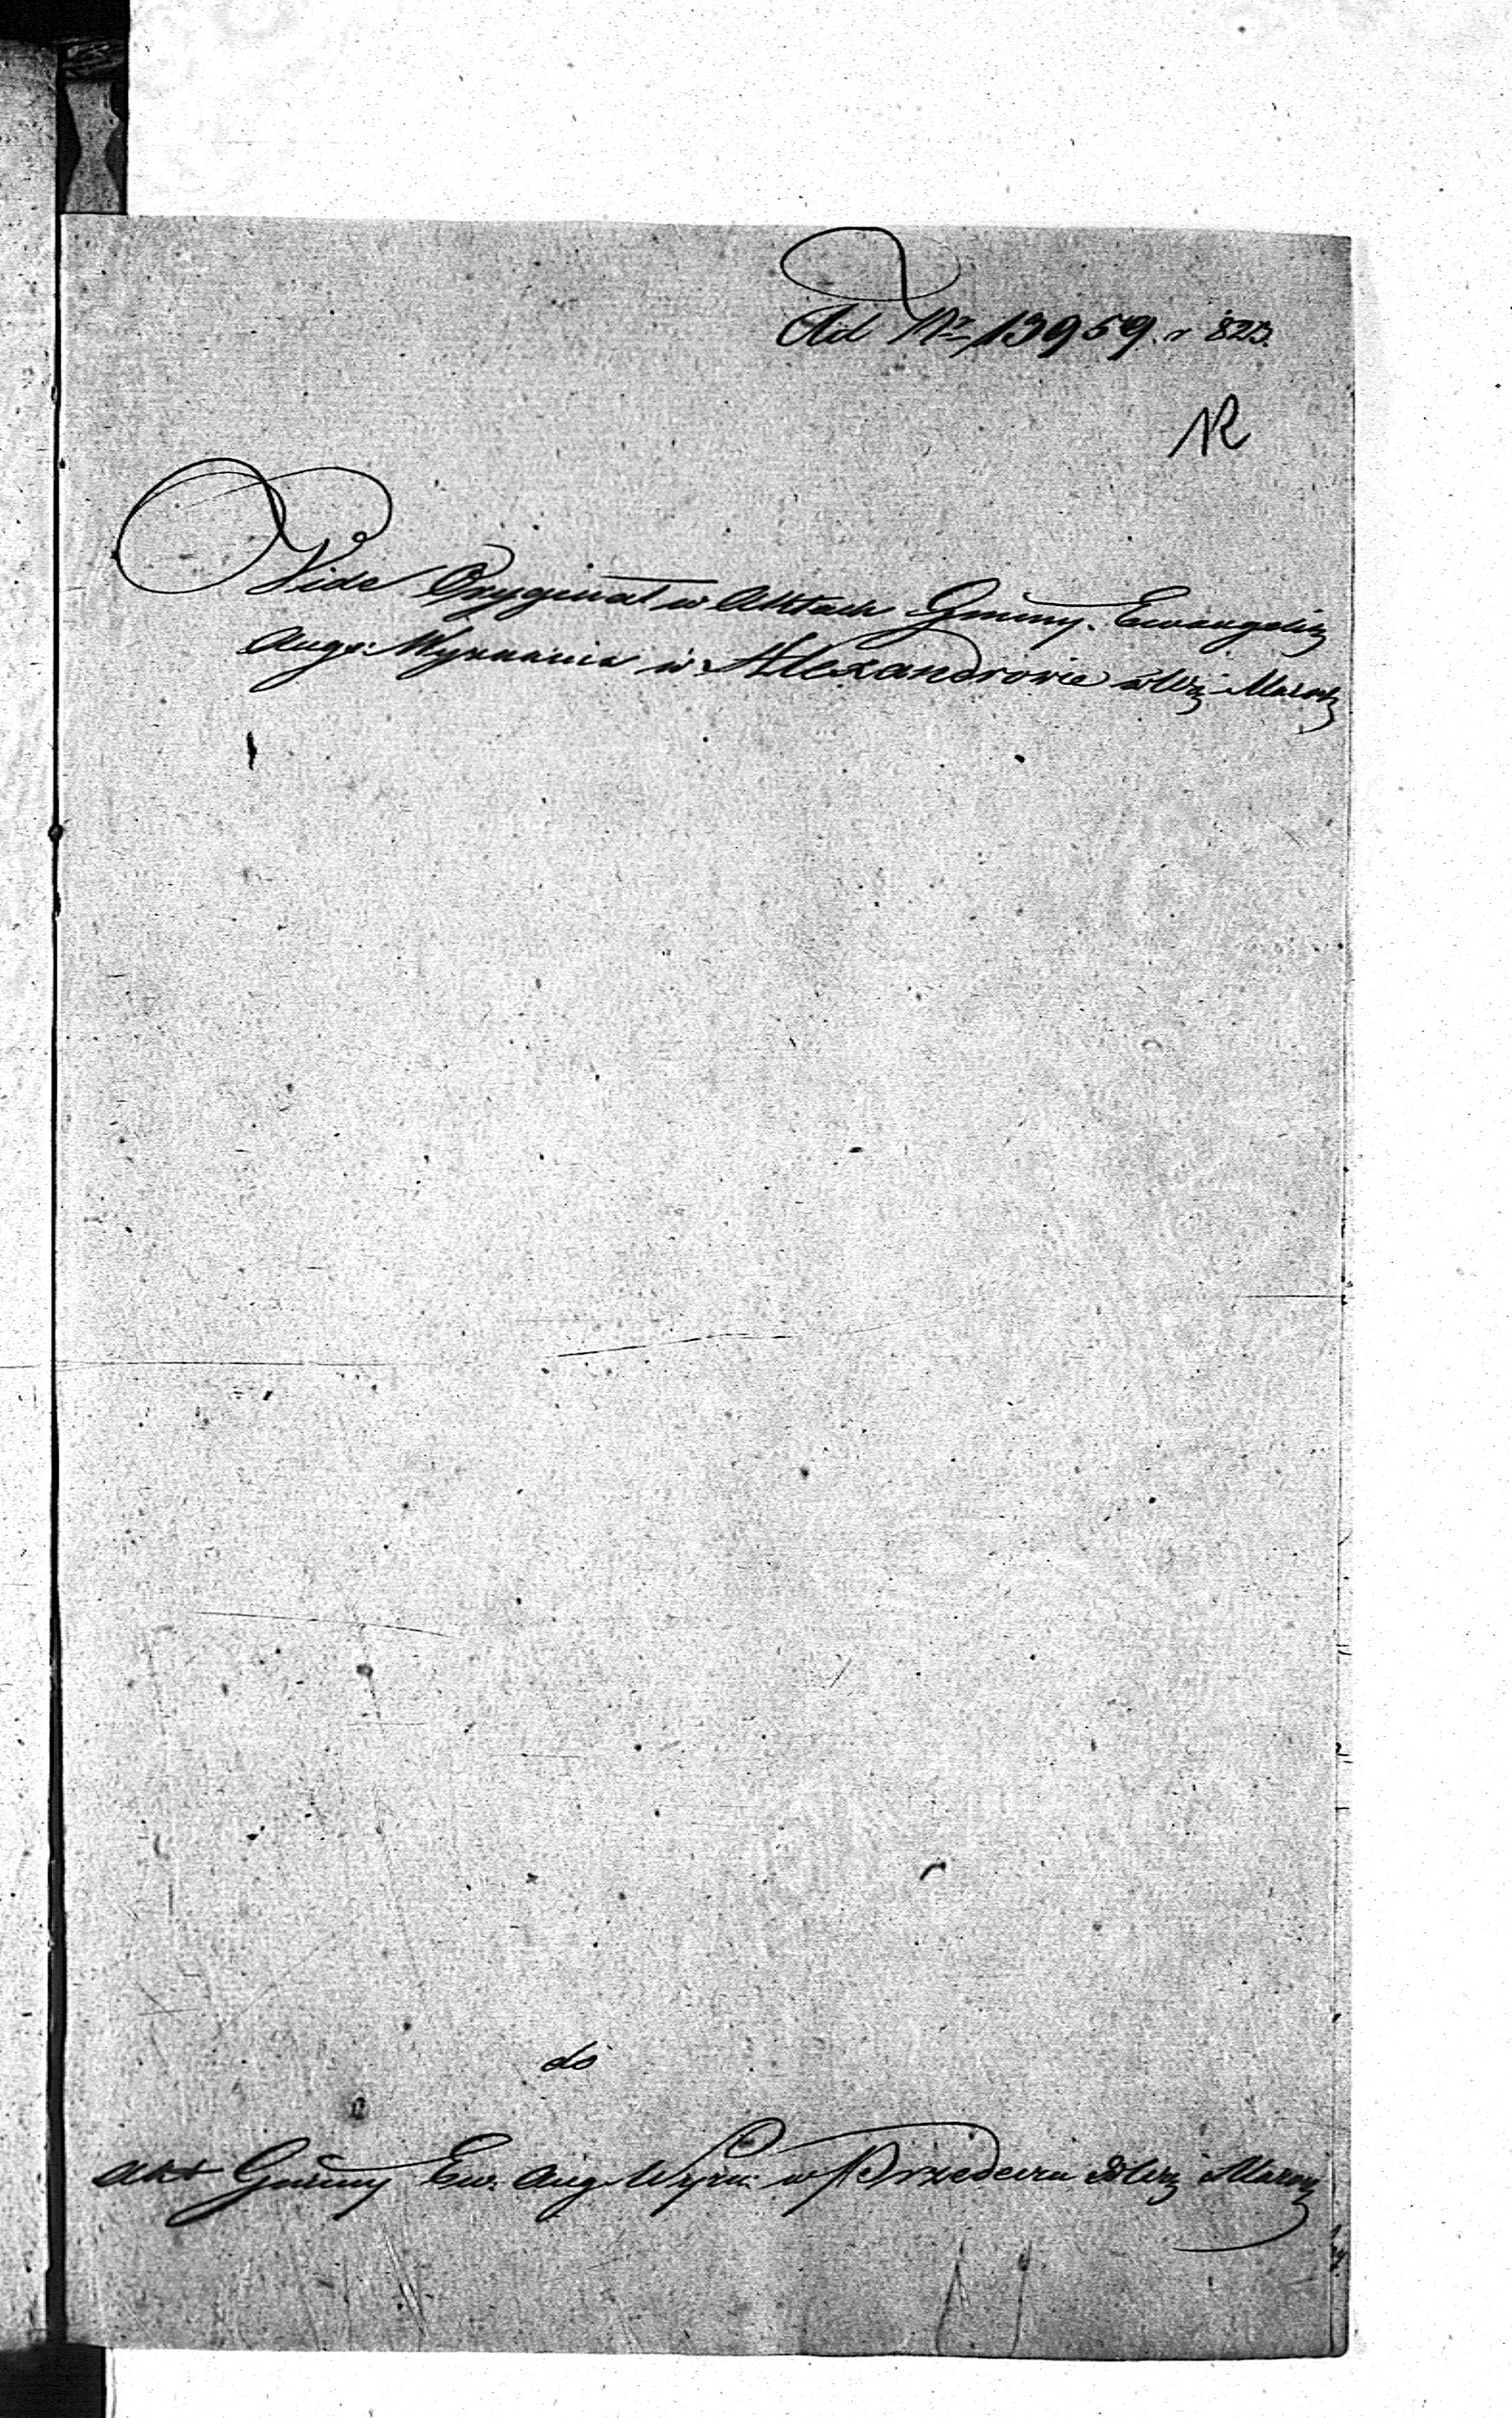 Ad Nr 13959. r 823.
Vide Oryginał w Aktach Gminy. Ewangelicz
Augs: Wyznania w Alexandrowie Mazow
do
Akt Gminy Ew. Aug. Wyzn: w Przedeczu Mazow